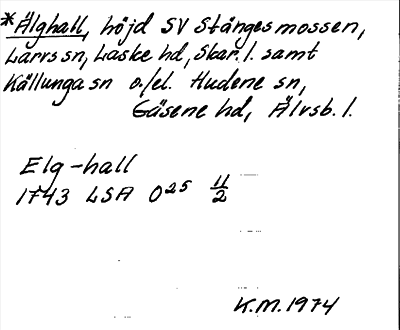 *Älghall, höjd SV Stångesmossen,
Larvs sn, Laske hd, Skar. l. samt
Källunga sn o./el. Hudene sn,
Gäsene hd, Älvsb. l.
Elg-hall
1743 LSA O25 11/2
K.M. 1974